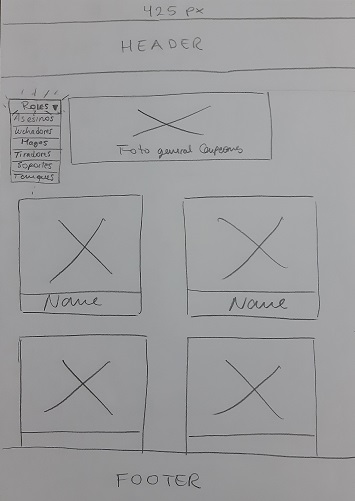 425 px
HEADER
Roles ▼
Asesinos
Luchadores
Magos
Tiradores
Soportes
Tanques
Foto general Campeones
Name
Name
FOOTER